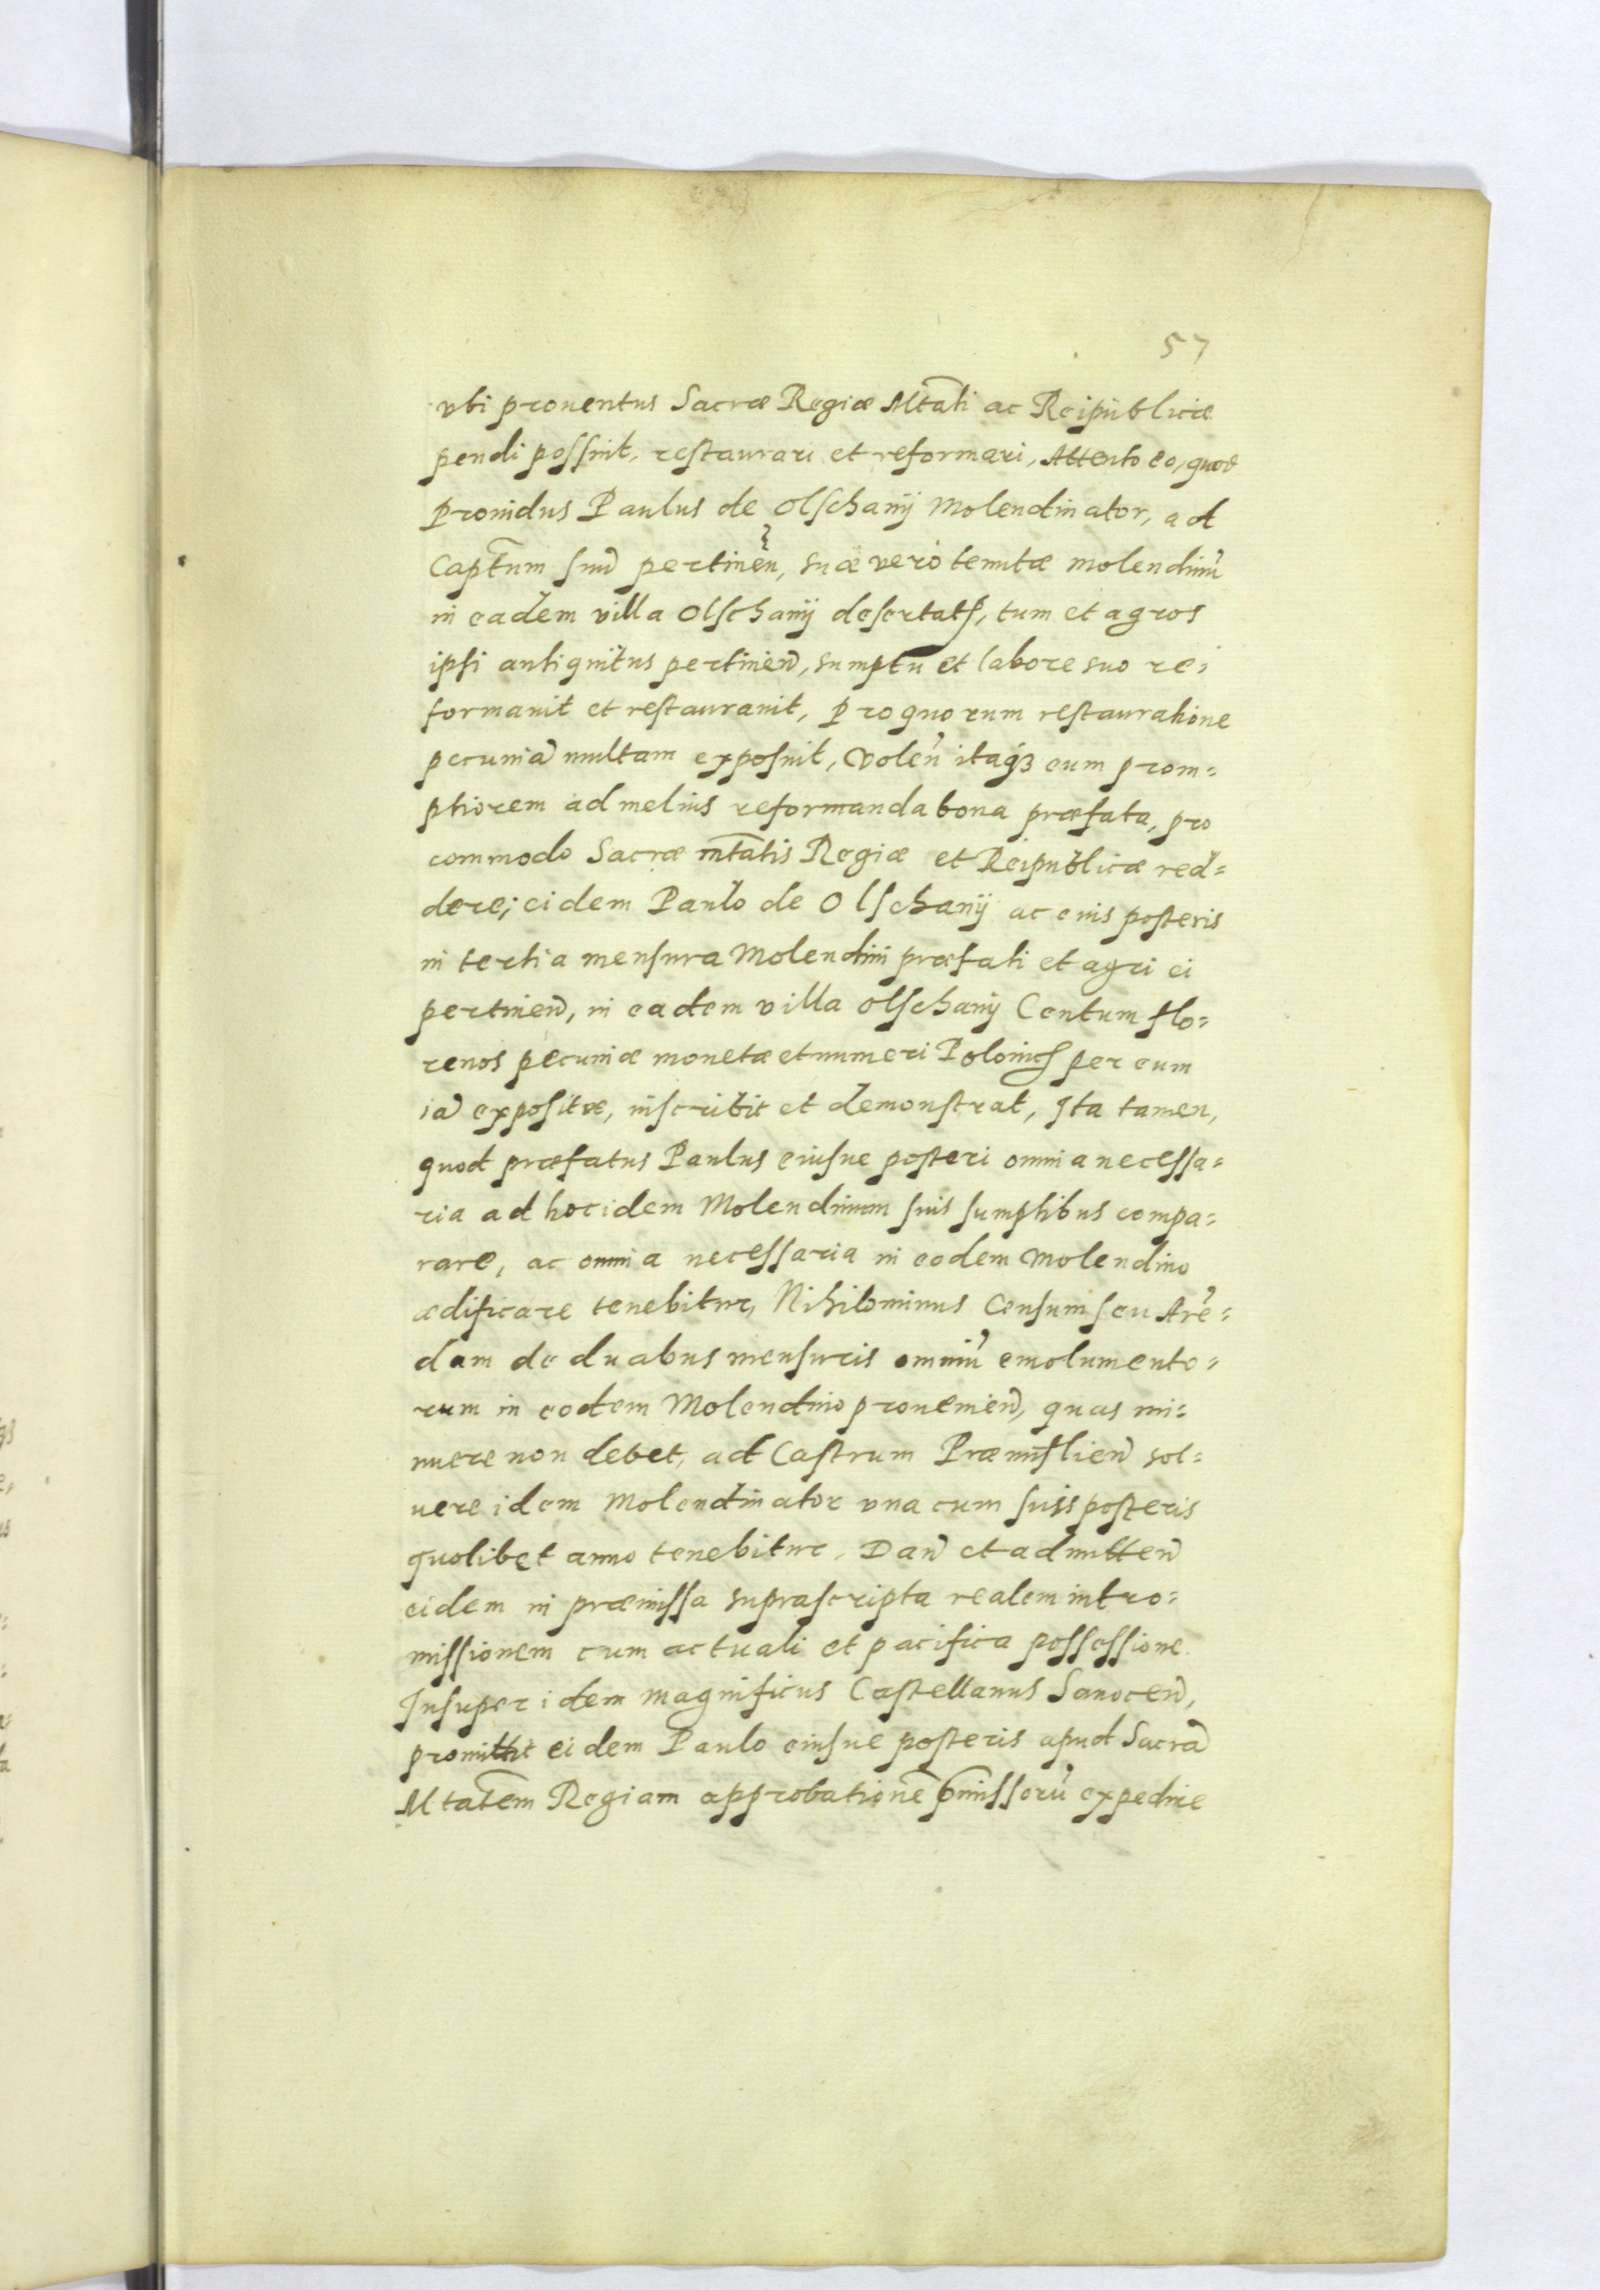 57
vbi prouentus Sacræ Regiæ Mtati ac Reipublicæ
pendi possint, restaurari et reformari, Attento eo, quod
Prouidus Paulus de Olschanij Molendinator, ad
Capt̃um suũ pertineñ, suæ vero tenutæ molendinũ
in eadem villa Olschanij desertatȩ, tum et agros
ipsi antiquitus pertineñ, sumptu et labore suo re=
formauit et restaurauit, pro quorum restauratione
pecuniã multam exposuit, Voleñ itaq3 eum prom=
ptiorem ad melius reformanda bona præfata, pro
commodo Sacræ mtatis Regiæ et Reipublicæ red=
dere; eidem Paulo de Olschanij ac euis posteris
in tertia mensura Molendini præfati et agri ei
pertineñ, in eadem villa Olschanij Centum flo=
renos pecuniæ monetæ et numeri Polonicȩ per eum
iã expositæ, inscribit et demonstrat, Ita tamen,
quod præfatus Paulus eiusue posteri omnia necessa=
ria ad hoc idem Molendinum suis sumptibus compa=
rare, ac omnia necessaria in eodem Molendino
ædificare tenebitur, Nihilominus Censum seu Are=
dam de duabus mensuris omniũ emolumento=
rum in eodem Molendino prouenieñ, quas mi=
nuere non debet, ad Castrum Præmislieñ sol=
uere idem Molendinator vna cum suis posteris
quolibet anno tenebitur. Dañ et admitteñ
eidem in præmissa suprascripta realem intro=
missionem cum actuali et pacifica possessione.
Insuper idem Magnificus Castellanus Sanoceñ,
promittit eidem Paulo eiusue posteris apud Sacrã
Mtatem Regiam approbationẽ pmissorũ expedire